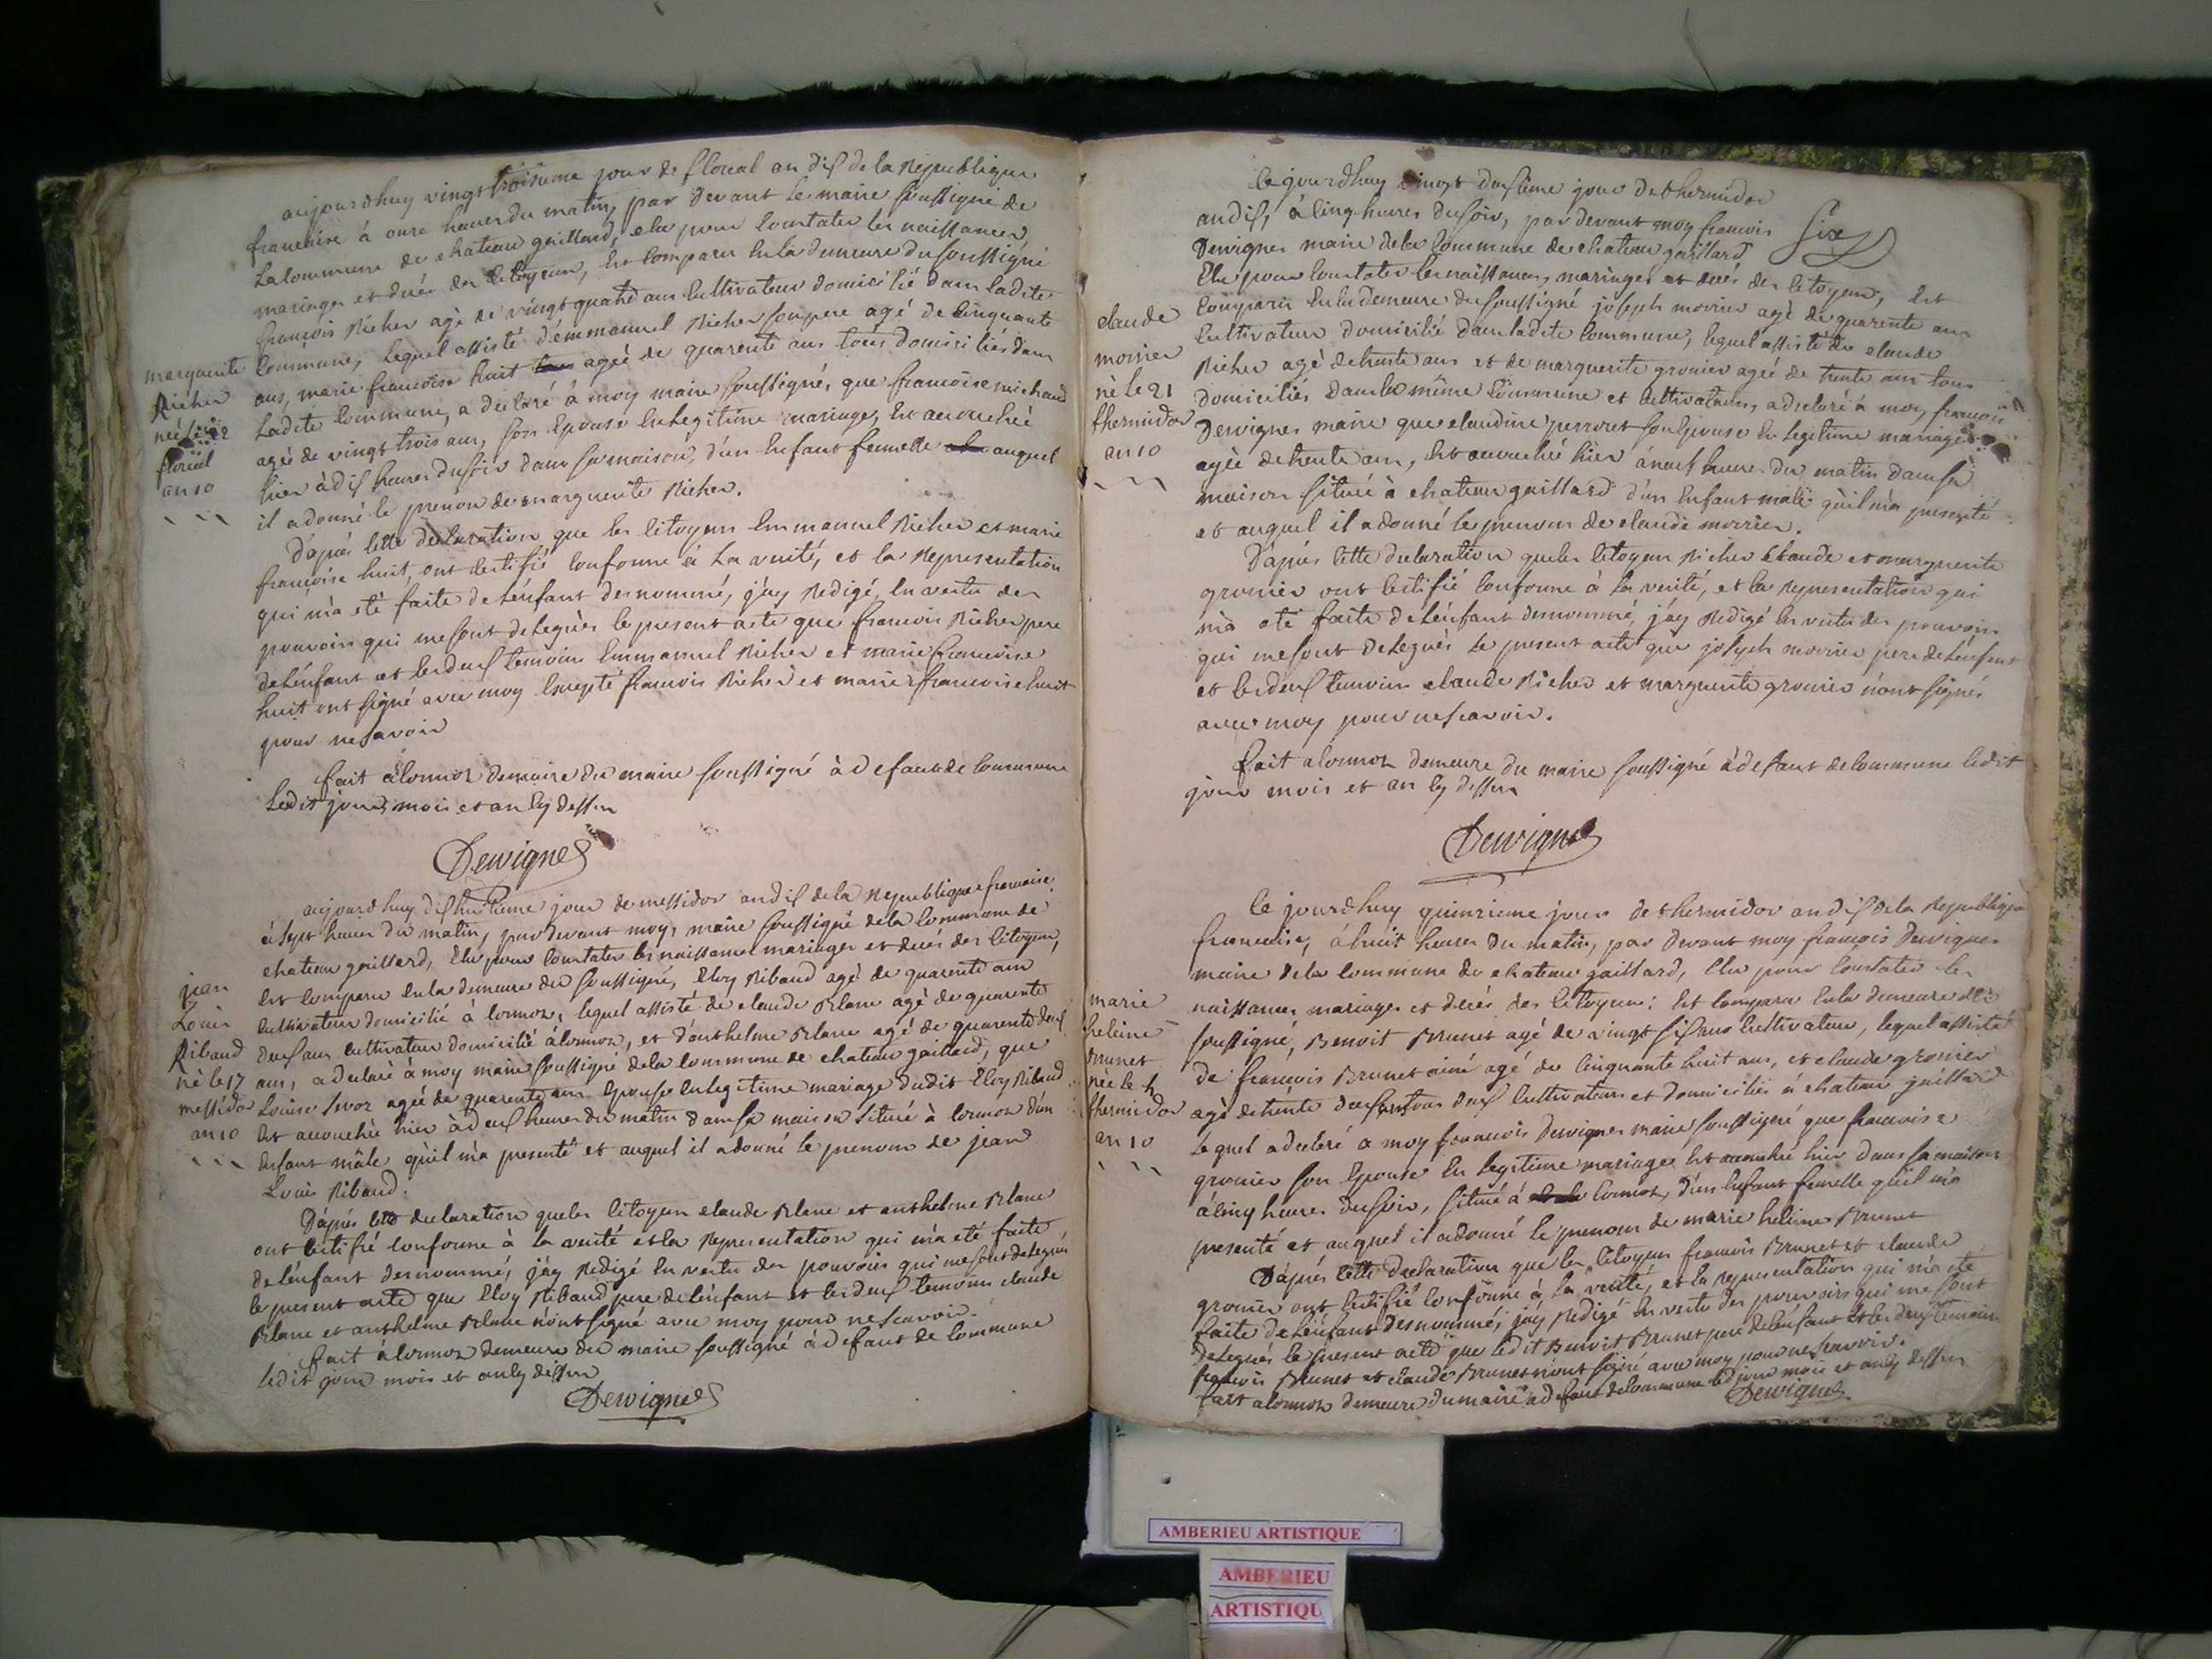 aujourdhuy vingt troisieme jour de floreal an dis de la Republique
francaise à onze heures du matin, par devant le maire soussigné de
la commune de chateau gaillard, elu pour constater les naissances
mariages et decés des citoyens, est comparu en la demeure du soussigné
francois Richer agé de vingt quatre ans cultivateur domicilié dans ladite
commune, lequel assisté d'emmanuel Richer son pere agé de cinquante
ans, marie francoise huit agée de quarente ans tous domiciliés dans
ladite commune, a declaré à moy maire soussigné, que francoise michaud
agée de vingt trois ans, son Epouse en legitime mariage, est accouchée
hier à dis heures du soir dans sa maison, d'un Enfant femelle auquel
il a donné le prenom de marguerite Richer.
marguerite
Richer
née le 22
floréal
an 10
D'aprés cette declaration que les citoyens Emmanuel Richer et marie
françoise huit, ont certifié conforme à la verité, et la Representation
qui m'a eté faite de l'énfant denommé, j'ay Redigé, en vertu des
pouvoirs qui me sont delegués le present acte que francois Richer pere
de l'énfant et les deux temoins Emmanuel Richer et marie francoise
huit ont signé avec moy Excepté francois Richer et marie francoise huit
pour ne savoir
fait à cormoz demeure du maire soussigné à defaut de commune
ledit jour, mois et an cy dessus
Dewignes
aujourdhuy dishuitieme jour de messidor an dis de la Republique francaise
à sept heures du matin, par devant moy, maire soussigné de la commune de
chateau gaillard, Elu pour constater les naissances mariages et decés des citoyens,
est comparu en la demeure du soussigné, Eloy Ribaud agé de quarente ans
cultivateur domicilié à cormoz, lequel assisté de claude Blanc agé de quarente
deux ans cultivateur domicilié à cormoz, et d'anthelme Blanc agé de quarente deux
ans, a declaré à moy maire soussigné de la commune de chateau gaillard, que
Louise agée de quarente ans Epouse en legitime mariage dudit Eloy Ribaud
est accouchée hier à deux heures du matin dans sa maison située à cormoz d'un
Enfant mâle qu'il m'à presenté et auquel il a donné le prenom de jean
Louis Ribaud.
jean
Louis
Ribaud
né le 17
messidor
an 10
D'aprés cette declaration que les citoyens claude Blanc et anthelme Blanc
ont certifié conforme à la verité et la Representation qui m'à eté faite
de l'énfant denommé, j'ay Redigé en vertu des pouvoirs qui me sont delegués
le present acte que Eloy Ribaud pere de l'énfant et les deux temoins claude
Blanc et anthelme Blanc n'ont signé avec moy pour ne scavoir.
fait à cormoz demeure du maire soussigné à defaut de commune
ledit jour mois et an cy dessus
Dewignes
Six
Ce jourdhuy vingt deusieme jour de thermidor
an dis, à cinq heures du soir, par devant moy francois
Dewignes maire de la commune de chateau gaillard
Elu pour constater les naissances, mariages et decés des citoyens, est
comparu en la demeure du soussigné joseph morrier agé de quarente ans
cultivateur domicilié dans ladite commune, lequel assisté de claude
Richer agé de trente ans et de marguerite gronier agée de trente ans tous
domiciliés dans la même commune et cultivateurs, a declaré à moy francois
Dewignes maire que claudine perroret son Epouse en legitime mariage
agée de trente ans, est accouché hier à neuf heures du matin dans sa
maison située à chateau gaillard d'un Enfant malle qu'il m'a presenté
et auquel il a donné le prenom de claude morrier.
claude
morrier
né le 21
thermidor
an 10
D'aprés cette declaration que les citoyens Richer Claude et marguerite
gronier ont certifié conforme à la verité, et la representation qui
m'à eté faite de l'énfant denommé, j'ay Redigé en vertu des pouvoirs
qui me sont delegués le present acte que joseph morrier pere de l'énfant
et les deux temoins claude Richer et marguerite gronier n'ont signés
avec moy pour ne scavoir.
fait à cormoz demeure du maire soussigné à defaut de commune ledit
jour mois et an cy dessus
Dewignes
Ce jourdhuy quinzieme jour de thermidor an dis de la Republique
francaise, à huit heures du matin, par devant moy françois Dewignes
maire de la commune de chateau gaillard, Elu pour constater les
naissances mariages et decés des citoyens; est comparu en la demeure du
soussigné, Benoit Brunet agé de vingt sis ans cultivateur, lequel assisté
de francois Brunet ainé agé de cinquante huit ans, et claude gronier
agé de trente deux ans tous deux cultivateurs et domiciliés à chateau gaillard
lequel a declaré à moy francois Dewignes maire soussigné que francoise
gronier son Epouse en legitime mariage est accouché hier dans sa maison
à cinq heures du soir, situé à cormoz, d'un Enfant femelle qu'il m'a
presenté et auquel il a donné le prenom de marie heleine Brunet
marie
heleine
Brunet
née le
thermidor
an 10
D'aprés cette declaration que les citoyens francois Brunet et claude
gronier ont certifié conforme à la verité, et la representation qui m'a eté
faite de l'énfant denommé, j'ay Redigé en vertu des pouvoirs qui me sont
delegués le present acte que ledit Benoit Brunet pere de l'énfant et les deux temoins
francois Brunet et claude Brunet n'ont signé avec moy pour ne scavoir.
fait à cormoz demeure du maire à defaut de commune ledit jour mois et an cy dessus
Dewignes
AMBERIEU ARTISTIQUE
AMBERIEU
ARTISTIQU